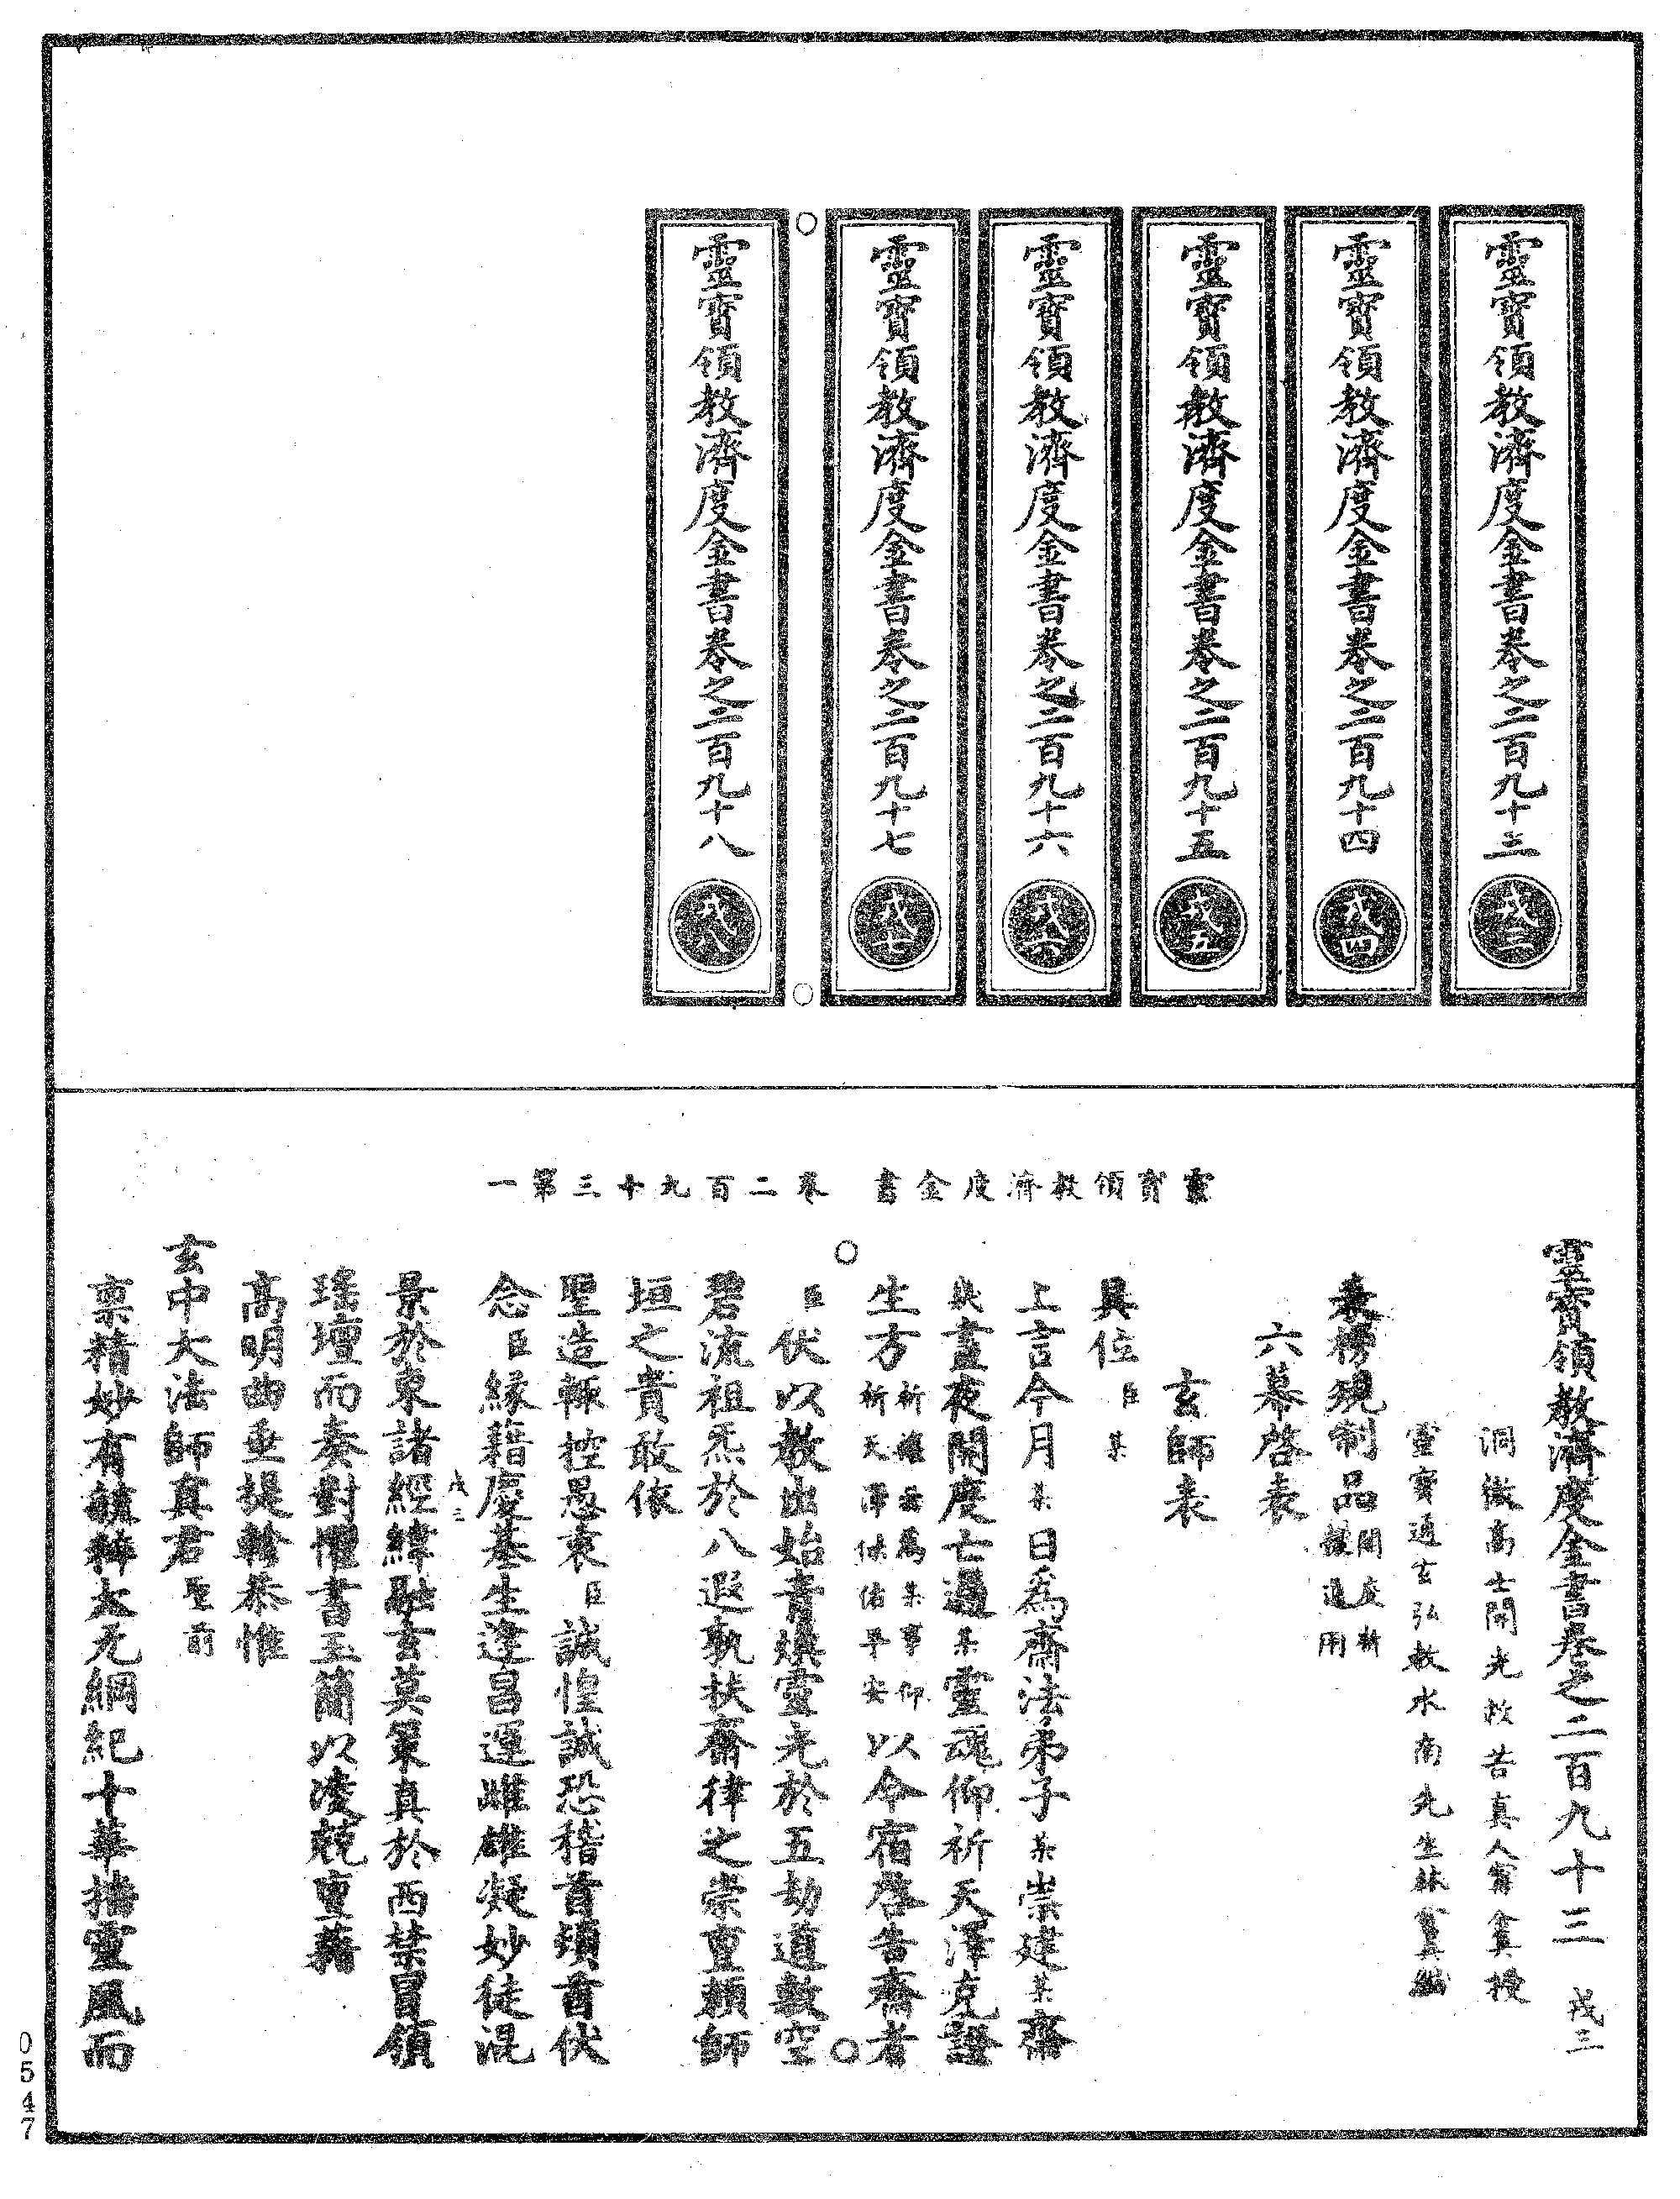 靈寶領教濟度金書卷之二百九十三 戎三
靈寶領教濟度金書卷之二百九十四 戎四
靈寶領教濟度金書卷之二百九十五 戎五
靈寶領教濟度金書卷之二百九十六 戎六
靈寶領教濟度金書卷之二百九十七 戎七
靈寶領教濟度金書卷之二百九十八 戎八
靈寶領教濟度金書 卷二百九十三第一
靈寶領教濟度金書卷之二百九十三 戎三
洞微高士開光救苦真人甯全真授
靈寶通玄弘教水南先生林靈真編
表榜規制品開度祈禳通用
六幕啓表
玄師表
具位臣某
上言今月某日爲齋法弟子某崇建某齋
幾晝夜開度亡過某靈魂仰祈天澤克證
生方祈禳云爲某事仰祈天澤保佑平安以今宿啓告齋者
臣伏以教出始青煥靈光於五劫道敷空
碧流祖炁於八遐孰扶齋律之崇重賴師
垣之貴敢依
聖造輒控愚衷臣誠惶誠恐稽首頓首伏
念臣緣藉慶基生逢昌運雌雄凝妙徒混
景於東諸經緯融玄莫策真於西禁冒領
戎三
瑤壇而奏對懼書玉簡以凌兢重藉
高明曲垂提幹恭惟
玄中大法師真君聖前
稟精妙有毓粹太无綱紀十華播靈風而
0547